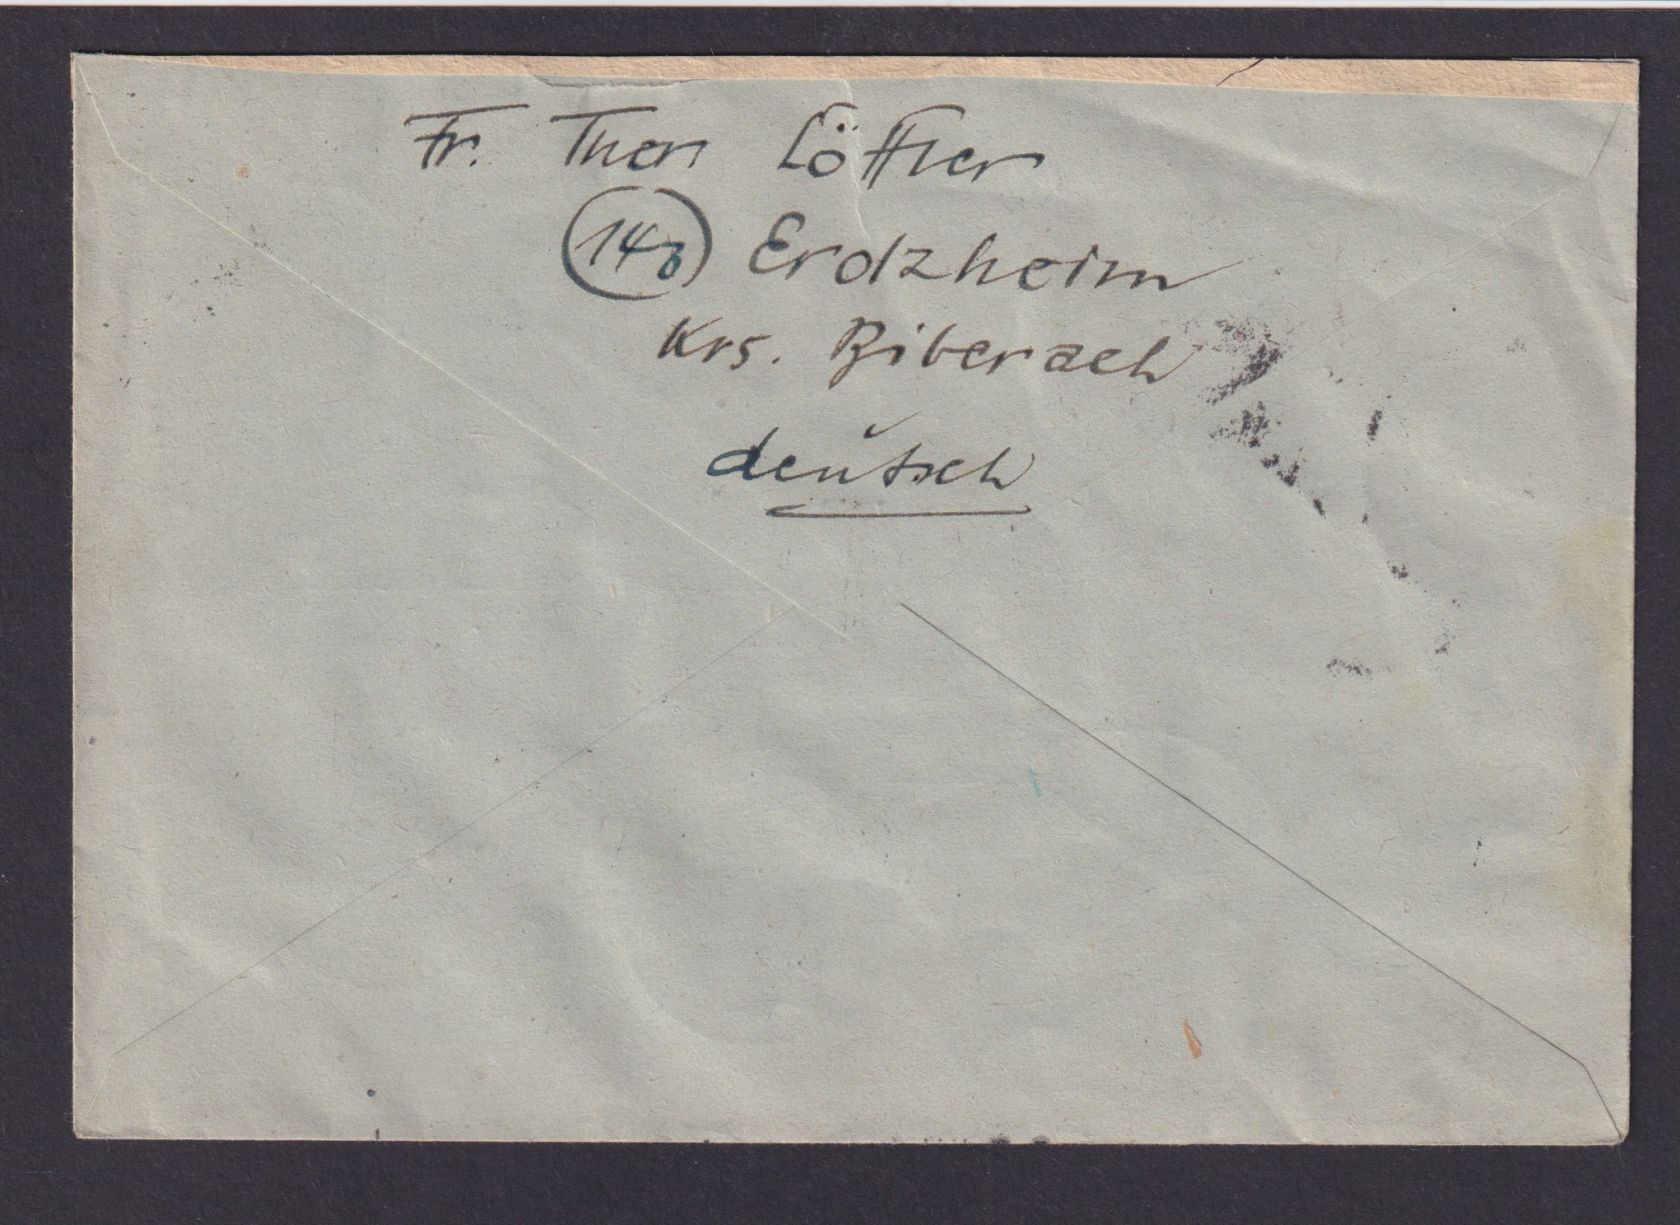 Fr. Ther. Löffler
(14b) Erolzheim
Krs. Biberach
deutsch